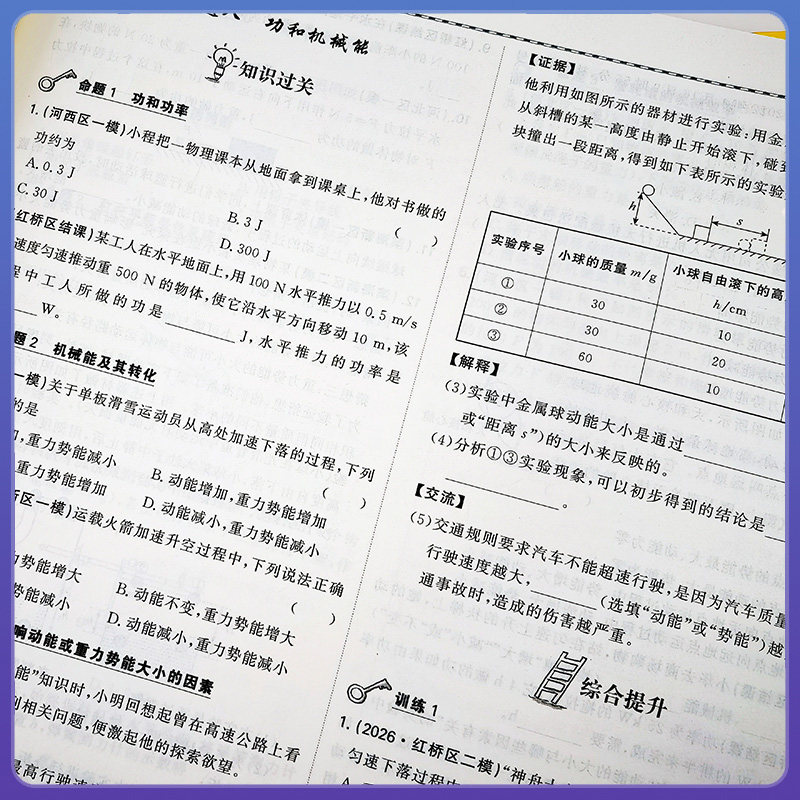 功和机械能
知识过关
命题1 功和功率
1.(河西区一模)小程把一物理课本从地面拿到课桌上,他对书做的
功约为 ( )
A. 0.3 J
B. 3 J
C. 30 J
D. 300 J
红桥区结课)某工人在水平地面上,用 100 N 水平推力以 0.5 m/s
速度匀速推动重 500 N 的物体,使它沿水平方向移动 10 m,该
程中工人所做的功是______J,水平推力的功率是
____W。
题2 机械能及其转化
一模)关于单板滑雪运动员从高处加速下落的过程,下列
的是 ( )
,重力势能减小
B. 动能增加,重力势能增加
重力势能增加
D. 动能减小,重力势能减小
区一模)运载火箭加速升空过程中,下列说法正确
( )
力势能增大
B. 动能不变,重力势能增大
势能减小
D. 动能减小,重力势能减小
响动能或重力势能大小的因素
能”知识时,小明回想起曾在高速公路上看
相关问题,便激起他的探索欲望。
最高行驶速
【证据】
他利用如图所示的器材进行实验:用金
从斜槽的某一高度由静止开始滚下,碰到
块撞出一段距离,得到如下表所示的实验
h
s
实验序号 小球的质量 m/g 小球自由滚下的高
h/cm
① 30 10
② 30 20
③ 60 10
【解释】
(3)实验中金属球动能大小是通过______
或“距离 s”)的大小来反映的。
(4)分析①③实验现象,可以初步得到的结论是____
______。
【交流】
(5)交通规则要求汽车不能超速行驶,是因为汽车质量
行驶速度越大,______(选填“动能”或“势能”)越
通事故时,造成的伤害越严重。
综合提升
训练1
1.(2026·红桥区二模)“神舟
匀速下落过程中